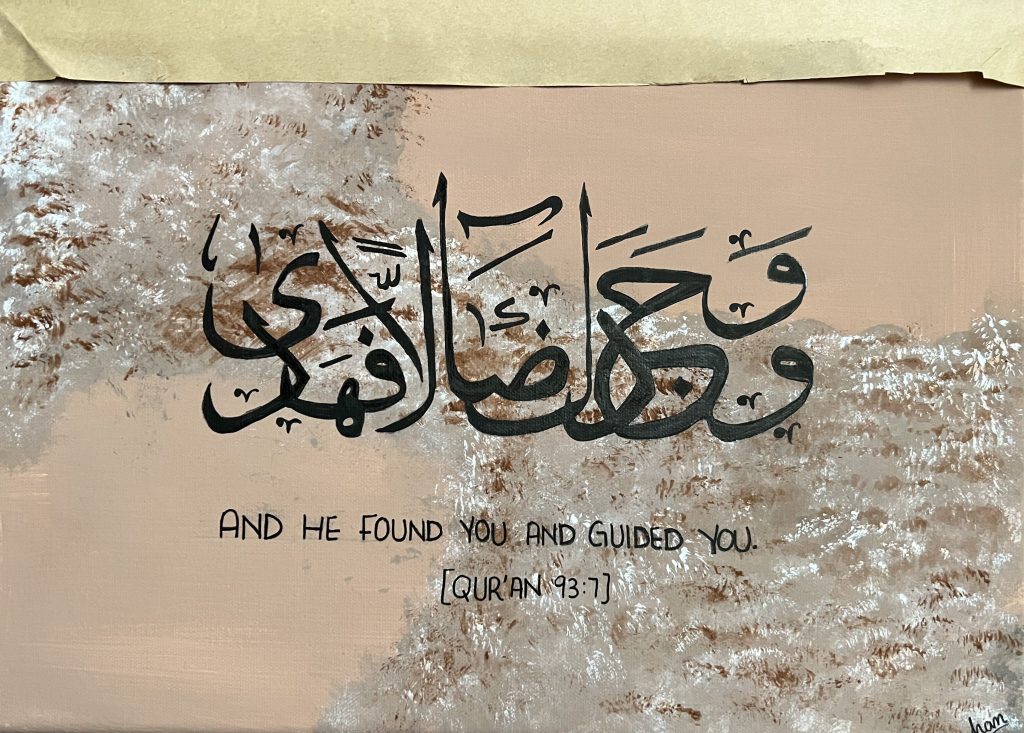 وَوَجَدَكَ ضَآلًّا فَهَدَىٰ
AND HE FOUND YOU AND GUIDED YOU.
[QUR'AN 93:7]